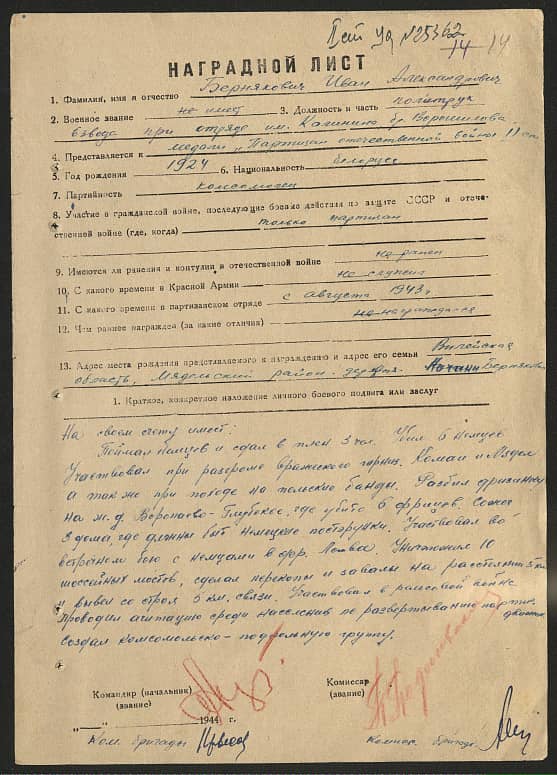 НАГРАДНОЙ ЛИСТ
1. Фамилия, имя и отчество Бернякович Иван Александрович
2. Военное звание не имеет 3. Должность и часть политрук
взвода при отряде им. Калинина бр. Ворошилова
4. Представляется к медали „Партизан отечественной войны" II ст.
5. Год рождения 1924 6. Национальность белорус
7. Партийность комсомолец
8. Участие в гражданской войне, последующие боевые действия по защите СССР и отече-
ственной войне (где, когда) только партизан
9. Имеются ли ранения и контузии в отечественной войне не ранен
10. С какого времени в Красной Армии не служил
11. С какого времени в партизанском отряде с августа 1943 г
12. Чем раннее награжден (за какие отличия) не награждался
13. Адрес места рождения представляемого к награждению и адрес его семьи Вилейская
область, Мядельский район, деревня
1. Краткое, конкретное изложение личного боевого подвига или заслуг
На своем счету имеет:
Поймал немцев и сдал в плен 3 чел. Убил 6 немцев
Участвовал при разгроме вражеского гарниз. и Мядел
а также при погоне на польские банды. Разбил дрезину
на ж.д. Воропаево-Глубокое, где убито 6 фрицев. Сожег
3 дома где должны быть немецкие постарунки. Участвовал во
встречном бою с немцами в дер. Уничтожил 10
шоссейных мостов, сделал перекопы и завалы на расстоянии 5 км
и вывел со строя 5 км. связи. Участвовал в рельсовой войне
проводил агитацию среди населения по развертыванию партиз. движения
Создал комсомольско-подпольную группу.
Командир (начальник)
(звание)
Комиссар
(звание)
„ " 1944 г.
Ком. бригады
Комисс. бригады